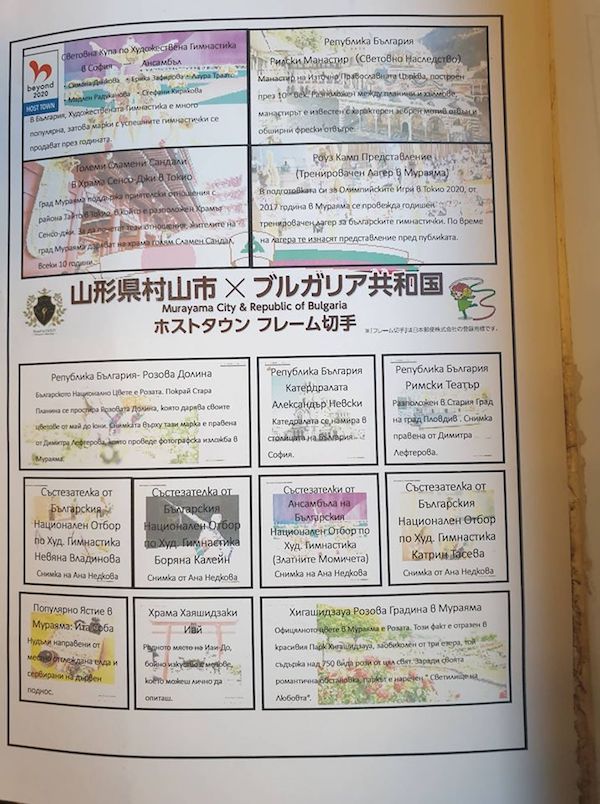 beyond
2020
HOST TOWN
Световна Купа по Художествена Гимнастика
в София Ансамбъл
- Симона Дянкова - Ерика Зафирова - Лаура Траатс
- Мадлен Радуканова - Стефани Кирякова
В България, Художествената Гимнастика е много
популярна, затова марки с успешните гимнастички се
продават през годината.
Република България
Рилски Манастир (Световно Наследство)
Манастир на Източно Православната Църква, построен
през 10 век. Разположен между планини и хълмове,
манастирът е известен с характерен зебрен мотив отвън и
обширни фрески отвътре.
Големи Сламени Сандали
в Храма Сенсо-Джи в Токио
Град Мураяма поддържа приятелски отношения с
района Тайто в Токио, в който е разположен Храмът
Сенсо-джи. За да почетат тези отношения, жителите на
град Мураяма даряват на храма голям Сламен Сандал,
Всеки 10 години.
Роуз Камп Представление
(Тренировачен Лагер в Мураяма)
В подготовката си за Олимпийските Игри в Токио 2020, от
2017 година в Мураяма се провежда годишен
тренировачен лагер за българските гимнастички. По време
на лагера те изнасят представление пред публиката.
山形県村山市 × ブルガリア共和国
Murayama City & Republic of Bulgaria
ホストタウン フレーム切手
※「フレーム切手」は日本郵便株式会社の登録商標です。
Република България- Розова Долина
Българското Национално Цвете е Розата. Покрай Стара
Планина се простира Розовата Долина, която дарява своите
цветове от май до юни. Снимката върху тази марка е правена
от Димитра Лефтерова, която проведе фотографска изложба в
Мураяма.
Република България
Катедралата
Александър Невски
Катедралата се намира в
столицата на България
София.
Република България
Римски Театър
Разположен в Стария Град
на град Пловдив . Снимка
правена от Димитра
Лефтерова.
Състезателка от
Българския
Национален Отбор
по Худ. Гимнастика
Невяна Владинова
Снимка на Ана Недкова
Състезателка от
Българския
Национален Отбор
по Худ. Гимнастика
Боряна Калейн
Снимка от Ана Недкова
Състезателки от
Ансамбъла на
Българския
Национален Отбор по
Худ. Гимнастика
(Златните Момичета)
Снимка на Ана Недкова
Състезателка от
Българския
Национален Отбор
по Худ. Гимнастика
Катрин Тасева
Снимка от Ана Недкова
Популярно Ястие в
Мураяма: Ита Соба
Нудъли направени от
местно отглеждана елда и
сервирани на дървен
поднос.
Храма Хаяшидзаки
Иай
Родното място на Иаи-До,
бойно изкуство с мечове,
което можеш лично да
опиташ.
Хигашидзауа Розова Градина в Мураяма
Официалното цвете в Мураяма е Розата. Този факт е отразен в
красивия Парк Хигашидзауа, заобиколен от три езера, той
съдържа над 750 вида рози от цял свят. Заради своята
романтична обстановка, паркът е наречен " Светилище на
Любовта".